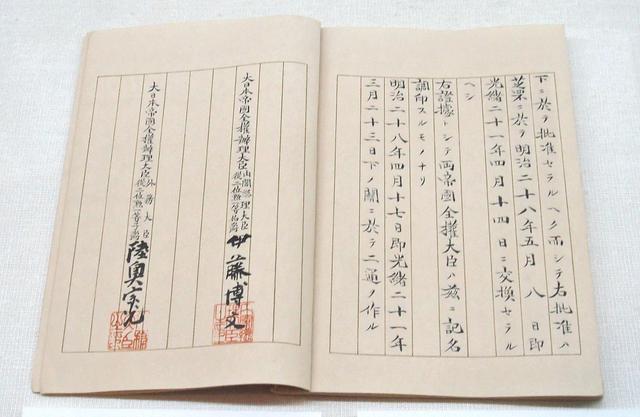 下ニ於テ批准セラルヘク而シテ右批准ハ
芝罘ニ於テ明治二十八年五月八日即
光緒二十一年四月十四日ニ交換セラル
ヘシ
右證據トシテ両帝國全權大臣ハ玆ニ記名
調印スルモノナリ
明治二十八年四月十七日即光緒二十一年
三月二十三日下ノ關ニ於テ二通ノ作ル
大日本帝國全權辦理大臣内閣總理大臣從二位勲一等伯爵伊藤博文
大日本帝國全權辦理大臣外務大臣從二位勲一等子爵陸奥宗光